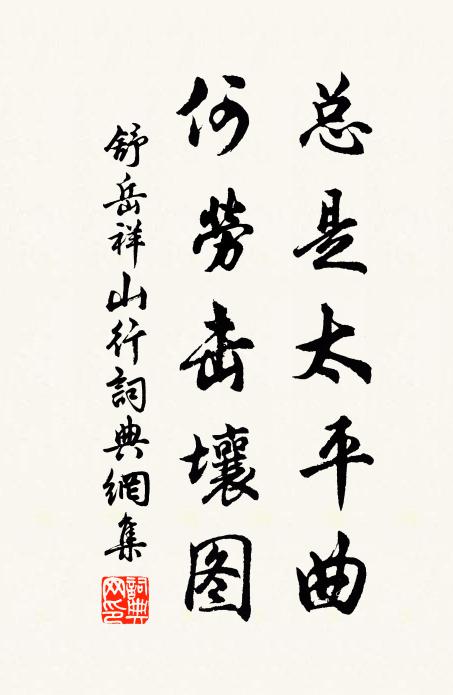 总是太平曲
何劳击壤图
舒岳祥山行詞典網集
詞典网印